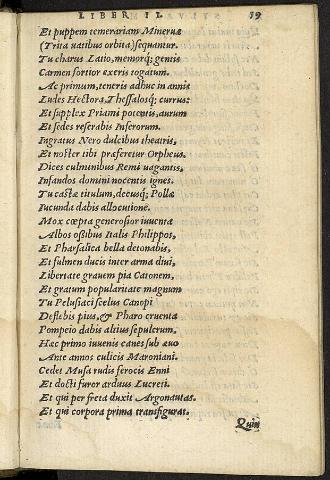 LIBER II. 39
Et puppem temerariam Mineruæ
(Trita uatibus orbita) sequantur.
Tu charus Latio, memorq; gentis
Carmen fortior exeris togatum.
Ac primum, teneris adhuc in annis
Ludes Hectora, Thessalosq; currus:
Et supplex Priami potentis, aurum
Et sedes reserabis Inferorum.
Ingratus Nero dulcibus theatris,
Et noster tibi præferetur Orpheus.
Dices culminibus Remi uagantis,
Infandos domini nocentis ignes.
Tu castæ titulum, decusq; Pollæ
Iucunda dabis allocutione.
Mox cœpta generosior iuuenta
Albos ossibus Italis Philippos,
Et Pharsalica bella detonabis,
Et fulmen ducis inter arma diui,
Libertate grauem pia Catonem,
Et gratum popularitate magnum
Tu Pelusiaci scelus Canopi
Deflebis pius, & Pharo cruenta
Pompeio dabis altius sepulcrum.
Hæc primo iuuenis canes sub æuo
Ante annos culicis Maroniani.
Cedet Musa rudis ferocis Enni
Et docti furor arduus Lucreti.
Et qui per freta duxit Argonautas.
Et qui corpora prima transfigurat.
Quin